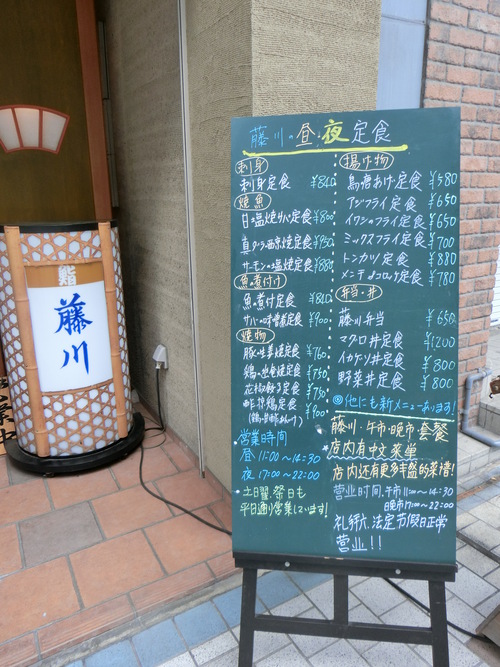 鮨
藤川
藤川の昼・夜定食
刺身
刺身定食 ¥840
焼魚
日の塩焼サバ定食 ¥800
真ダーラ西京焼定食 ¥850
サーモンの塩焼定食 ¥880
魚の煮付け
魚の煮付定食 ¥840
サバの味噌煮定食 ¥900
焼物
豚の生姜焼定食 ¥760
鶏の照焼定食 ¥750
定食 ¥750
酢 鶏定食 ¥900
営業時間
昼 11:00~14:30
夜 17:00~22:00
土曜、祭日も
平日通り営業しています!
揚げ物
鳥唐あげ定食 ¥580
アジフライ定食 ¥650
イワシのフライ定食 ¥650
ミックスフライ定食 ¥700
トンカツ定食 ¥880
メンチ&コロッケ定食 ¥780
弁当・丼
藤川弁当 ¥650
マグロ丼定食 ¥1200
イカゲソ丼定食 ¥800
野菜丼定食 ¥800
◎他にも新メニューあります!
藤川・午市・晚市 套餐
店内有中文菜单
店内还有更多丰盛的菜谱!
营业时间、午市11:00~14:30
晚市17:00~22:00
礼拜六、法定节假日正常
营业!!